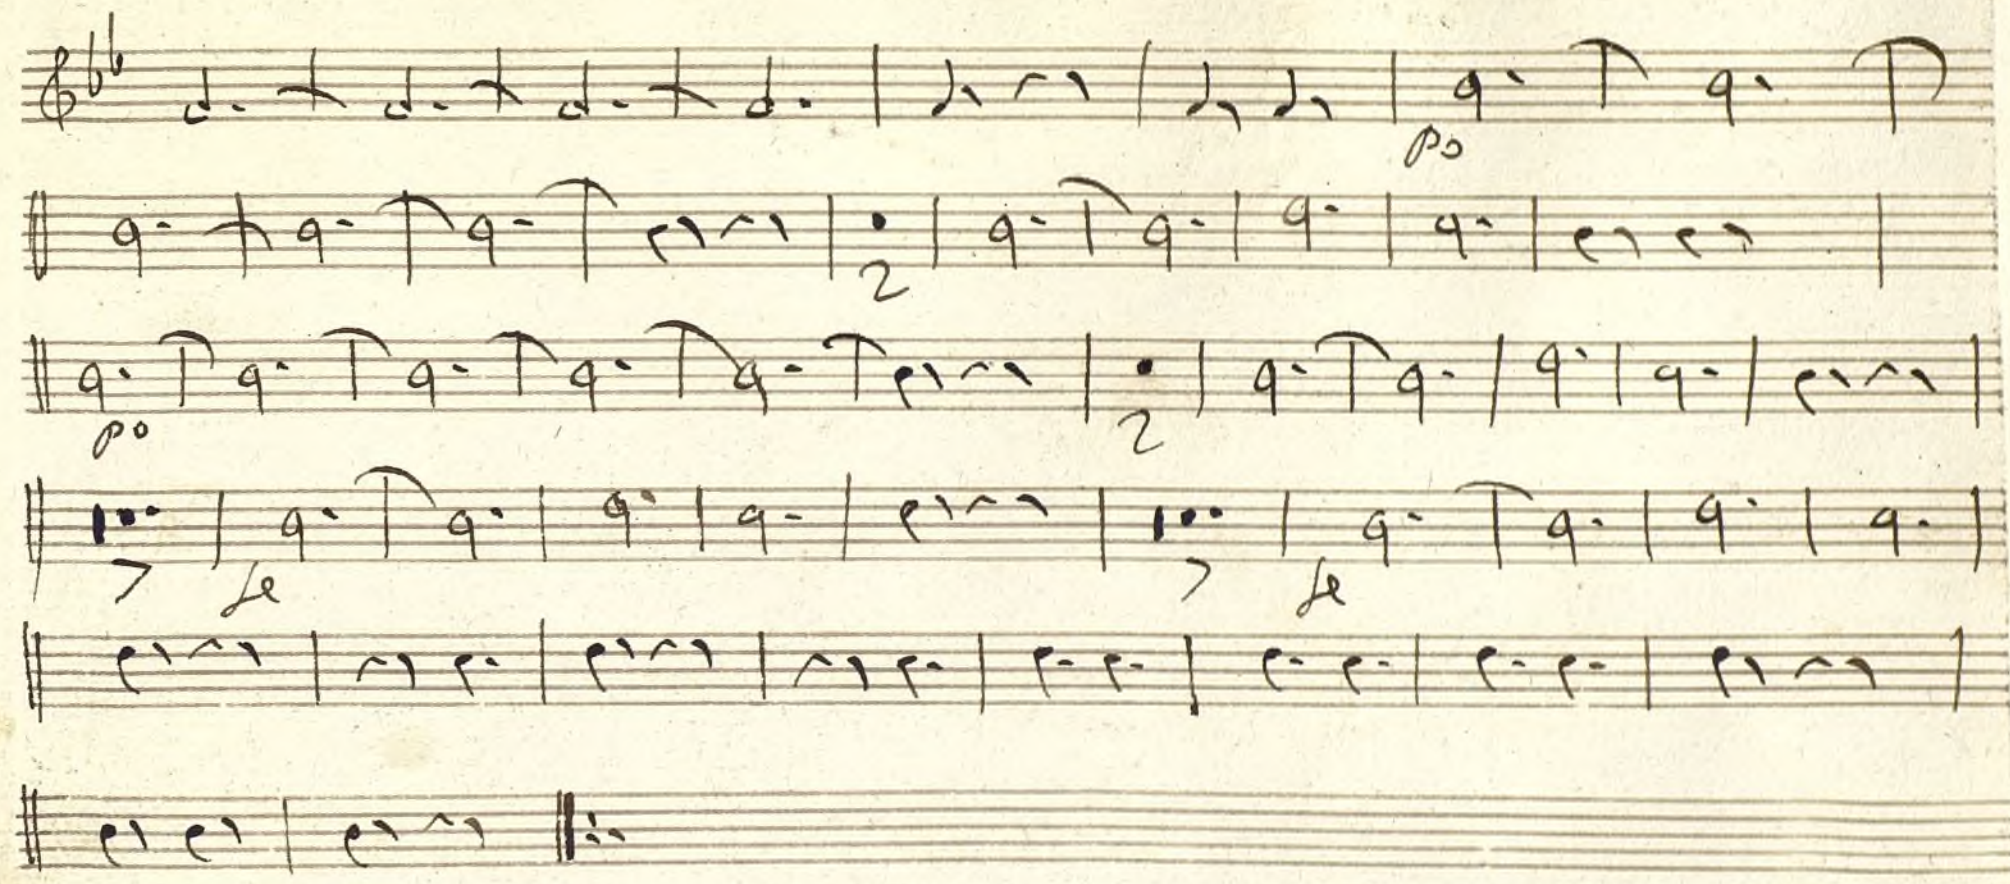 po
2
po
2
7 fe 7 fe